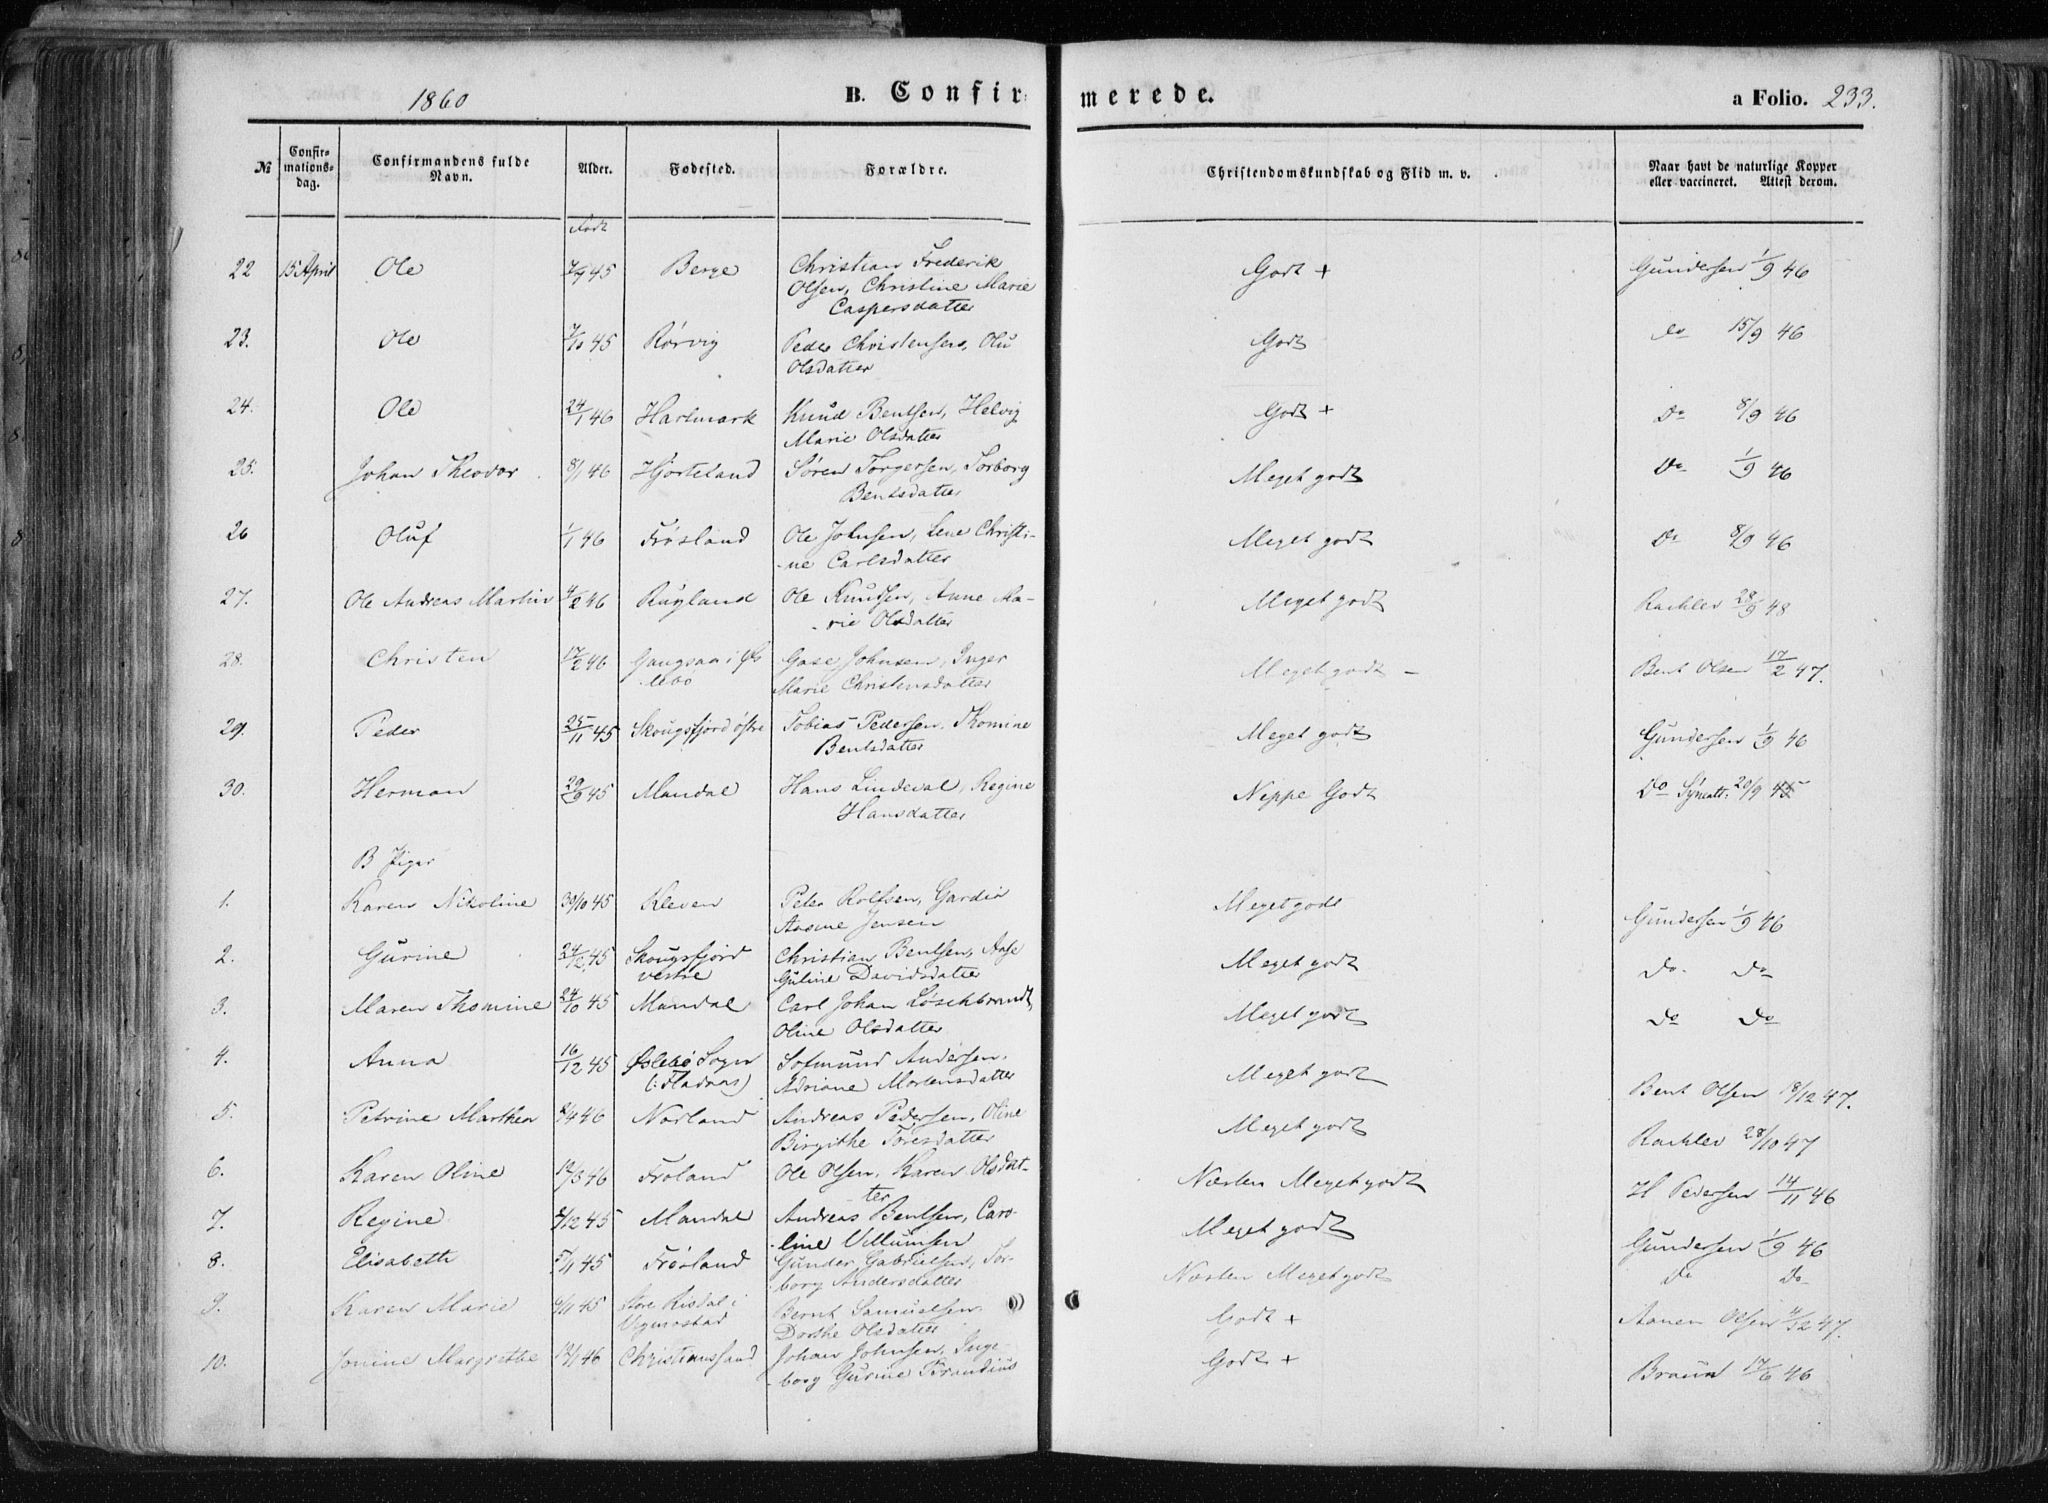 1860 B. Confirmerede. a Folio. 233.
№ Confirmationsdag. Confirmandens fulde Navn. Alder. Fødested. Forældre. Christendomskundskab og Flid m. v. Naar havt de naturlige Kopper eller vaccineret. Attest derom.
Født
22 15 April Ole 45 Berge Christian Frederik Godt + Gundersen 1/9 46
Olsen, Christine Marie
Caspersdatter
23. Ole 7/10 45 Rørvig Peder Christensen, Olu Godt do 15/9 46
Olsdatter
24. Ole 24/1 46 Hartmark Knud Bentsen, Helvig Godt + Do 8/9 46
Marie Olsdatter
25. Johan Theodor 8/1 46 Hjorteland Søren Torgersen, Torborg Meget godt Do 1/9 46
Bentsdatter
26 Oluf 1/1 46 Frøsland Ole Johnsen, Lene Christi- Meget godt Do 8/9 46
-ne Carlsdatter
27. Ole Andreas Martin 4/2 46 Rugland Ole Knudsen, Anne Ma- Meget godt 28/9 48
-rie Olsdatter
28. Christen 17/2 46 Gangsaa i Øs Johnsen, Inger Meget godt - Bent Olsen 17/2 47.
-lebo Marie Christensdatter
29. Peder 25/11 45 Skougsfjord østre Tobias Pedersen, Thomine Meget godt Gundersen 1/9 46
Bentsdatter
30. Herman 29/9 45 Mandal Hans Lindeval, Regine Neppe Godt Do Syneatt: 20/9 45
Hansdatter
B Piger
1. Karen Nikoline 30/10 45 Kleven Peter Rolfsen, Meget godt Gundersen 1/9 46
Jensen
2. Gurine 24/12 45 Skougsfjord Christian Bentsen, Aase Meget godt Do. Do
vestre Guline Davidsdatter
3. Maren Thomine 24/10 45 Mandal Carl Johan Løschbrandt, Meget godt Do Do
Oline Olsdatter
4. Anna 16/12 45 Øslebø Sogn Andersen, Meget godt Bent Olsen 18/12 47.
(: Fladaas) Adriane Mortensdatter
5. Petrine Marthea 46 Norland Andreas Pedersen, Oline Meget godt 28/10 47
Birgithe Toresdatter
6. Karen Oline 12/3 46 Froland Ole Olsen, Karen Olsdat- Næsten Meget godt H Pedersen 14/11 46
ter
7. Regine 45 Mandal Andreas Bentsen, Caro- Meget godt Gundersen 1/9 46
-line Villumsen
8. Elisabeth 5/11 45 Frøsland Gunder Gabrielsen, Tor- Næsten Meget godt Do Do
borg Andersdatter
9. Karen Marie 6/11 45 Store Risdal i Bernt Samuelsen Godt + Aanen Olsen 4/12 47.
Vigmostad Dorthe Olsdatter
10. Jonine Margrethe 12/1 46 Christianssand Johan Johnsen, Inge- Godt + Braun 17/6 46
-borg Gurine Brandius